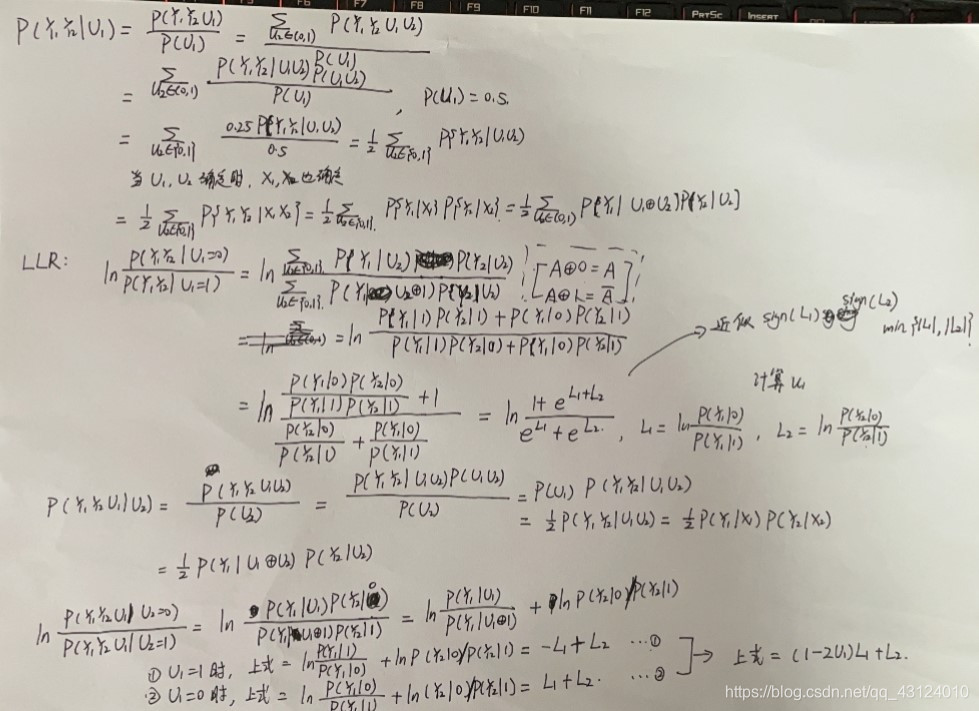 F6 F7 F8 F9 F10 F11 F12 PrtSc Insert
P(Y₁Y₂|U₁) = P(Y₁Y₂U₁)/P(U₁) = Σ_{U₂∈(0,1)} P(Y₁Y₂U₁U₂)/P(U₁)
= Σ_{U₂∈(0,1)} P(Y₁Y₂|U₁U₂)P(U₁U₂)/P(U₁) , P(U₁)=0.5.
= Σ_{U₂∈{0,1}} 0.25P{Y₁Y₂|U₁U₂)/0.5 = 1/2 Σ_{U₂∈{0,1}} P{Y₁Y₂|U₁U₂)
当U₁,U₂确定时,X₁,X₂也确定
= 1/2 Σ_{U₂∈{0,1}} P{Y₁Y₂|X₁X₂} = 1/2 Σ_{U₂∈{0,1}} P{Y₁|X₁}P{Y₂|X₂} = 1/2 Σ_{U₂∈(0,1)} P{Y₁|U₁⊕U₂)P{Y₂|U₂]
LLR: ln P(Y₁Y₂|U₁=0)/P(Y₁Y₂|U₁=1) = ln Σ_{U₂∈{0,1}} P(Y₁|U₂)P(Y₂|U₂)/Σ_{U₂∈{0,1}} P(Y₁|U₂⊕1)P(Y₂|U₂) [A⊕0=A A⊕1=A̅]
= ln P(Y₁|1)P(Y₂|1)+P(Y₁|0)P(Y₂|1)/P(Y₁|1)P(Y₂|0)+P(Y₁|0)P(Y₂|1) → 近似 sign(L₁) sign(L₂) min{|L₁|,|L₂|}
= ln (P(Y₁|0)P(Y₂|0)/P(Y₁|1)P(Y₂|1) + 1)/(P(Y₂|0)/P(Y₂|1) + P(Y₁|0)/P(Y₁|1)) = ln (1+e^{L₁+L₂})/(e^{L₁}+e^{L₂}) , L₁=ln P(Y₁|0)/P(Y₁|1) , L₂=ln P(Y₂|0)/P(Y₂|1) 计算U₁
P(Y₁Y₂U₁|U₂) = P(Y₁Y₂U₁U₂)/P(U₂) = P(Y₁Y₂|U₁U₂)P(U₁U₂)/P(U₂) = P(U₁)P(Y₁Y₂|U₁U₂)
= 1/2 P(Y₁Y₂|U₁U₂) = 1/2 P(Y₁|X₁)P(Y₂|X₂)
= 1/2 P(Y₁|U₁⊕U₂)P(Y₂|U₂)
ln P(Y₁Y₂U₁|U₂=0)/P(Y₁Y₂U₁|U₂=1) = ln P(Y₁|U₁)P(Y₂|0)/P(Y₁|U₁⊕1)P(Y₂|1) = ln P(Y₁|U₁)/P(Y₁|U₁⊕1) + ln P(Y₂|0)/P(Y₂|1)
① U₁=1时,上式= ln P(Y₁|1)/P(Y₁|0) + ln P(Y₂|0)/P(Y₂|1) = -L₁+L₂ …① → 上式=(1-2U₁)L₁+L₂.
② U₁=0时,上式= ln P(Y₁|0)/P(Y₁|1) + ln(Y₂|0)/P(Y₂|1) = L₁+L₂. …②
https://blog.csdn.net/qq_43124010